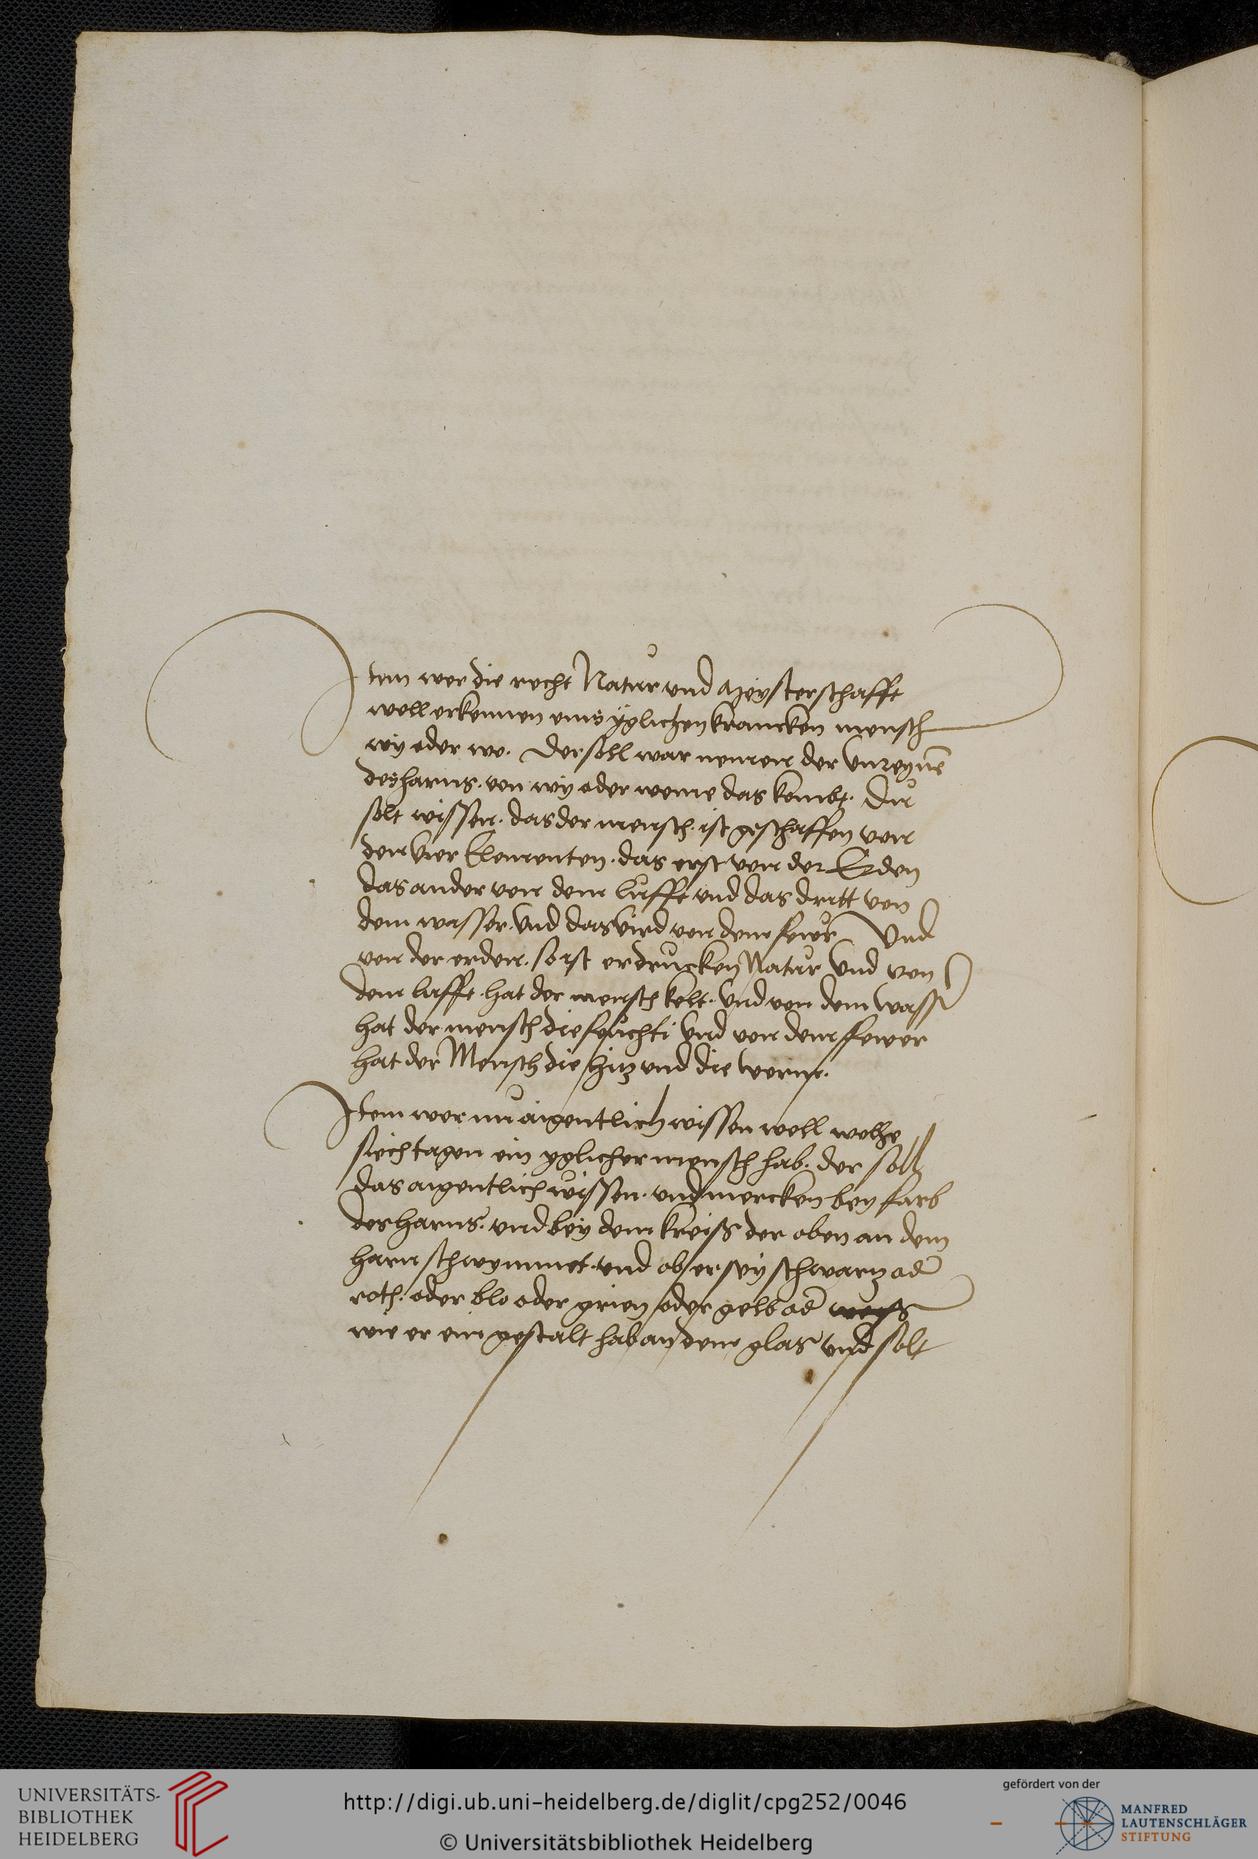 Item wer die recht Natur vnd Meysterschafft
woll erkennen eins yglichen krancken mensch
wy oder we. Der soll war nemen der vnreynē
des harns. von wy oder weme das kombt. Du
solt wissen. das der mensch. ist geschaffen von
den vier Elementen. das erst von der Erden
das ander von dem lufft vnd das dritt von
dem wasser. vnd das vird von dem fewr Vnd
von der erden. so ist er drucken Natur Vnd von
dem lufft. hat der mensch kelt. vnd von dem wasser
hat der mensch die feuchti vnd von dem fewer
hat der Mensch die hitz vnd die werme.
Item wer nu aigentlich wissen woll welhe
siechtagen ein yglicher mensch hab. der soll
das aigentlich wissen. vnd mercken bey farb
des harns. vnd bey dem kreiß der oben an dem
harn schwymmet. vnd ob er sey schwartz odē
roth. oder blo oder grien oder gelb odē weyß
wie er ein gestalt hab an dem glas vnd solt
UNIVERSITÄTS-
BIBLIOTHEK
HEIDELBERG
http://digi.ub.uni-heidelberg.de/diglit/cpg252/0046
© Universitätsbibliothek Heidelberg
gefördert von der
MANFRED
LAUTENSCHLÄGER
STIFTUNG